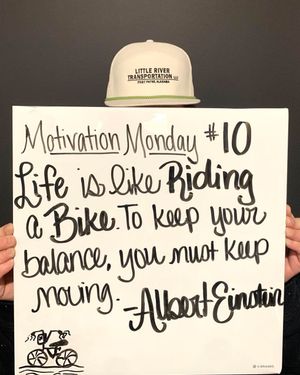 LITTLE RIVER
TRANSPORTATION LLC
FORT PAYNE, ALABAMA
Motivation Monday #10
Life is like Riding
a Bike. To keep your
balance, you must keep
moving.
-Albert Einstein